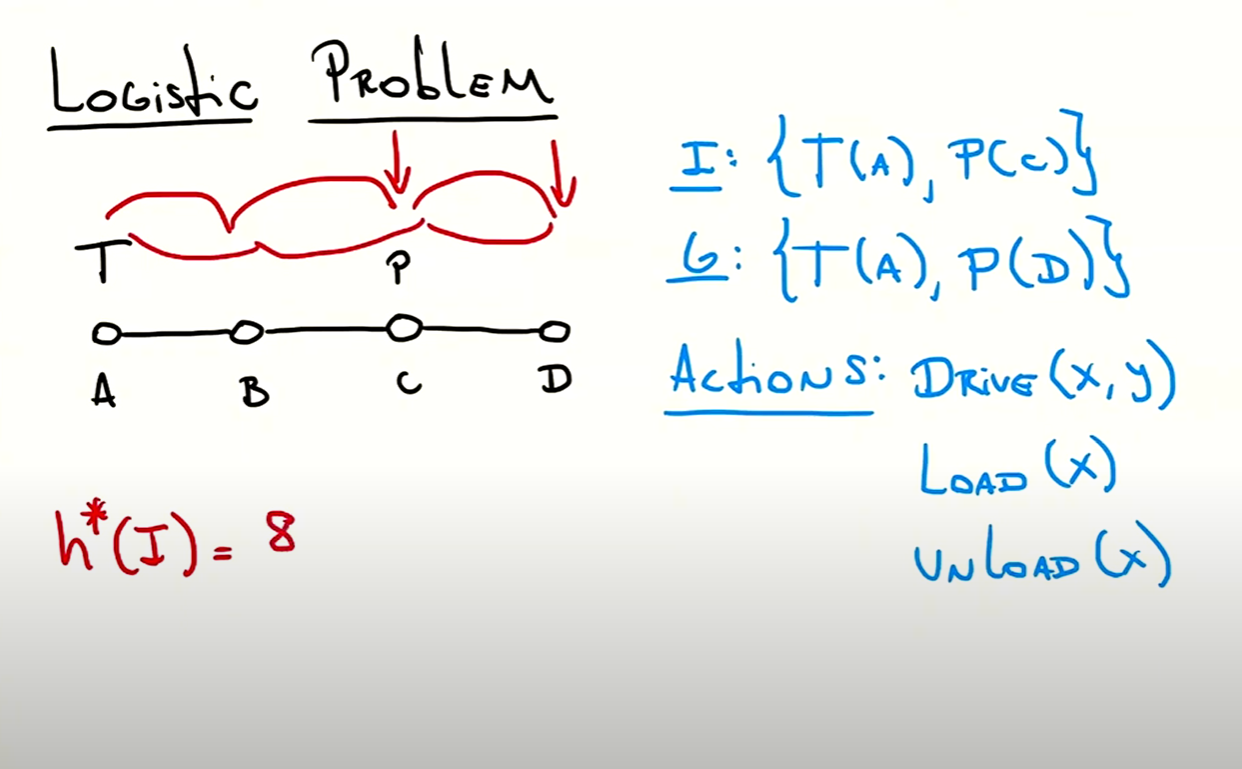 Logistic Problem
T P
A B C D
h*(I) = 8
I: {T(A), P(C)}
G: {T(A), P(D)}
Actions: Drive(x, y)
Load(x)
Unload(x)